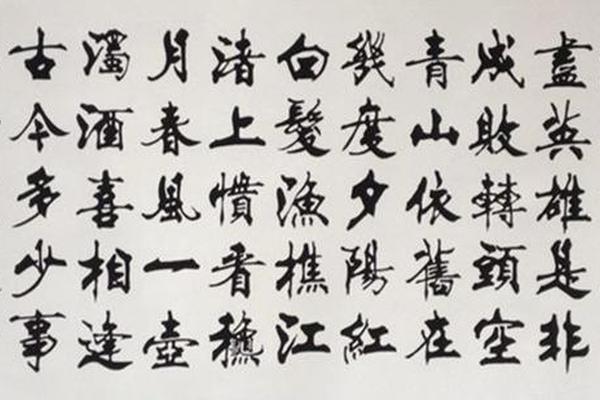 盡英雄是非
成敗轉頭空
青山依舊在
幾度夕陽紅
白髮漁樵江
渚上慣看龝
月春風一壺
濁酒喜相逢
古今多少事